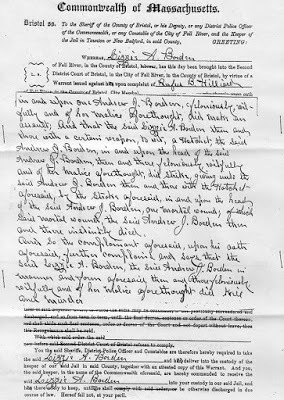 Commonwealth of Massachusetts.
Bristol ss. To the Sheriff of the County of Bristol, or his Deputy, or any District Police Officer
of the Commonwealth, or any Constable of the City of Fall River, and the Keeper of
the Jail in Taunton or New Bedford, in said County, GREETING:
WHEREAS, Lizzie A. Borden
of Fall River, in the County of Bristol, has this day been brought into the Second
L. S. District Court of Bristol, in the City of Fall River, in the County of Bristol, by virtue of a
Warrant issued upon complaint of Rufus B. Hilliard
in and upon one Andrew J. Borden, feloniously, wil-
fully and of her malice aforethought, did make an
assault, And that the said Lizzie A. Borden then and
there with a certain weapon, to wit, a hatchet, the said
Andrew J. Borden, in and upon the head of the said
Andrew J. Borden then and there feloniously, wilfully
and of her malice aforethought, did strike, giving unto the
said Andrew J. Borden then and there with the Hatchet
aforesaid, by the stroke aforesaid, in and upon the head
of the said Andrew J. Borden, one mortal wound, of which
said mortal wound the said Andrew J. Borden then
and there instantly died
And so the complainant aforesaid, upon his oath
aforesaid, further complains and says that the
said Lizzie A. Borden, the said Andrew J. Borden in
manner and form aforesaid, then and there feloniously
wilfully and of her malice aforethought did kill
and murder
You the said Sheriff, District Police Officer and Constables are therefore hereby required to take
the said Lizzie A. Borden and deliver into the custody of the
keeper of our said Jail in said County, together with an attested copy of this Warrant. And you,
the said keeper, in the name of the Commonwealth aforesaid, are hereby commanded to receive the
said Lizzie A. Borden into your custody in our said Jail, and
there safely to keep, until or be otherwise discharged in due
course of law. Hereof fail not, at your peril.